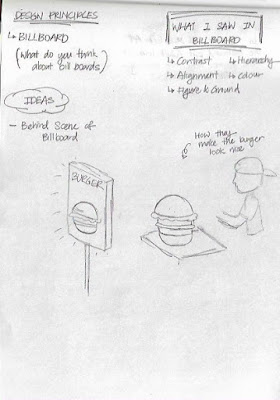 DESIGN PRINCIPLES
↳ BILLBOARD
(What do you think
about bill boards)
IDEAS
- Behind Scene of
Billboard
WHAT I SAW IN
BILLBOARD
↳ Contrast ↳ Hierarchy
↳ Alignment ↳ Colour
↳ Figure & Ground
How they
make the burger
look nice
BURGER